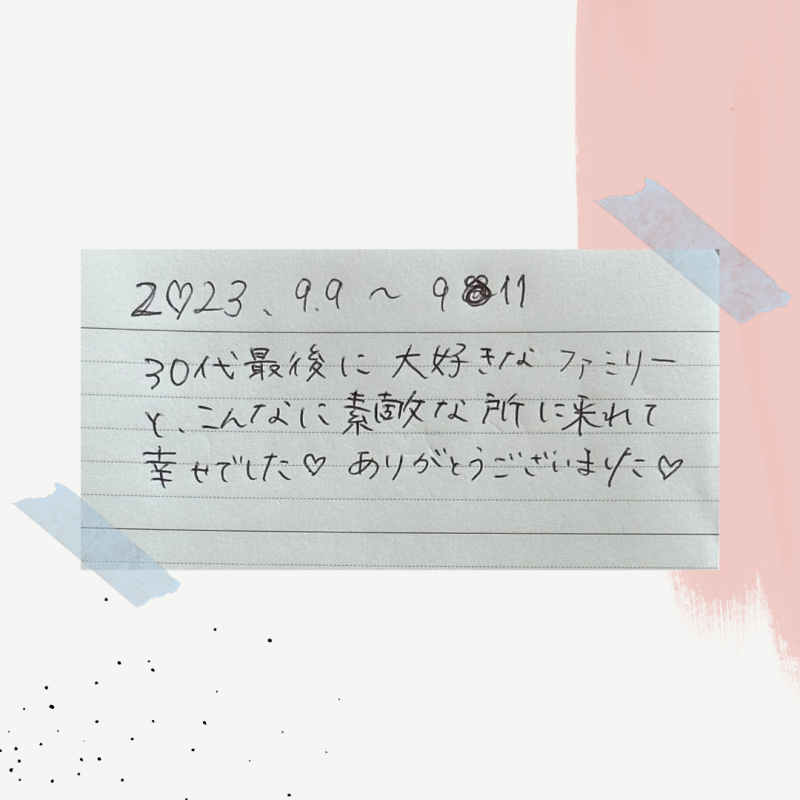 2♡23、9.9〜9 11
30代最後に大好きなファミリー
と、こんなに素敵な所に来れて
幸せでした♡ ありがとうございました♡